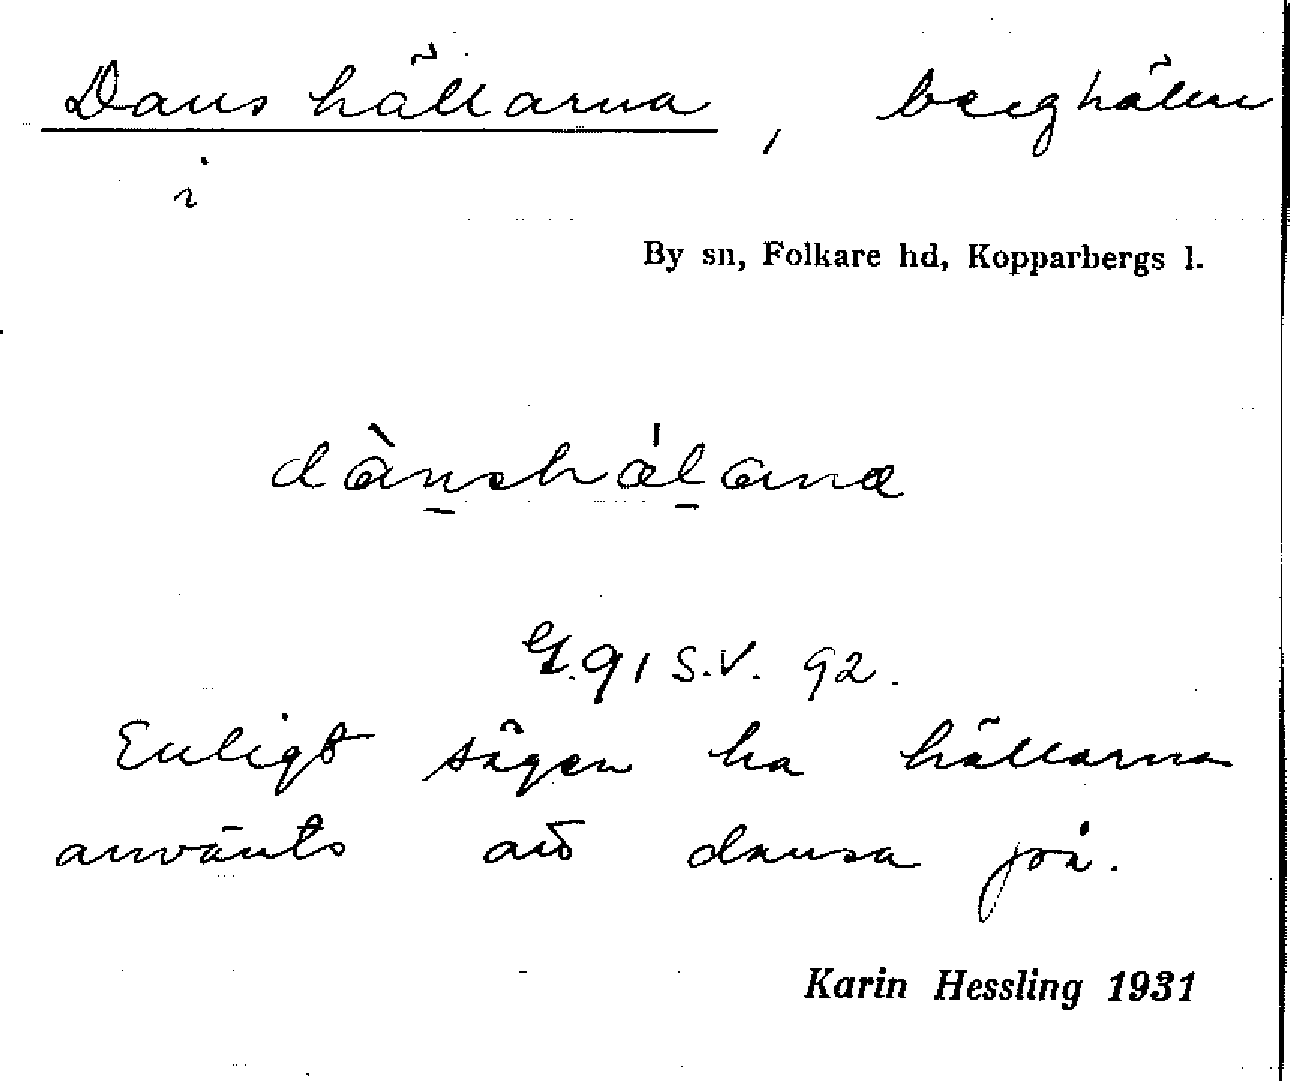 Danshällarna, berghällar
i
By sn, Folkare hd, Kopparbergs l.
dànshä́lana
G. 91 S.V. 92.
Enligt sägen ha hällarna
använts att dansa på.
Karin Hessling 1931